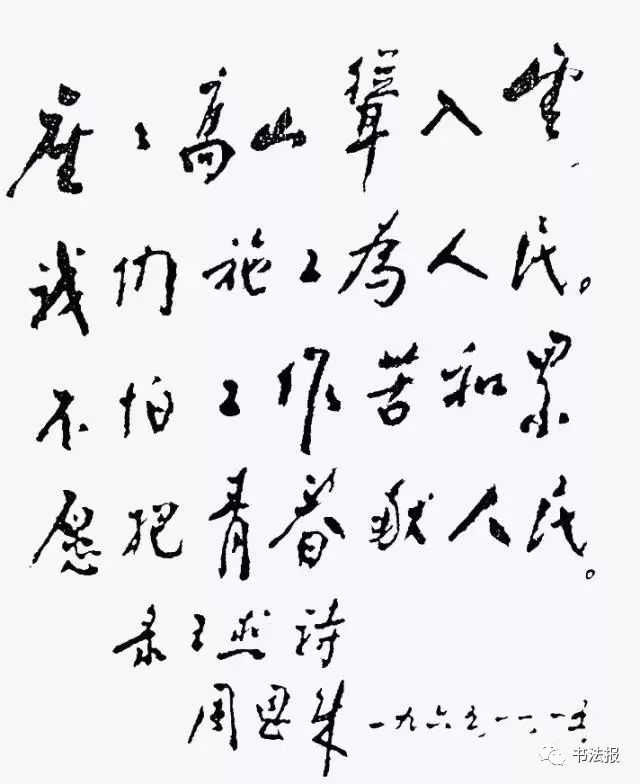 座々高山聳入雲
我们施工為人民。
不怕工作苦和累
愿把青春献人民。
录王杰诗
周恩来 一九六五.一一.一五.
书法报